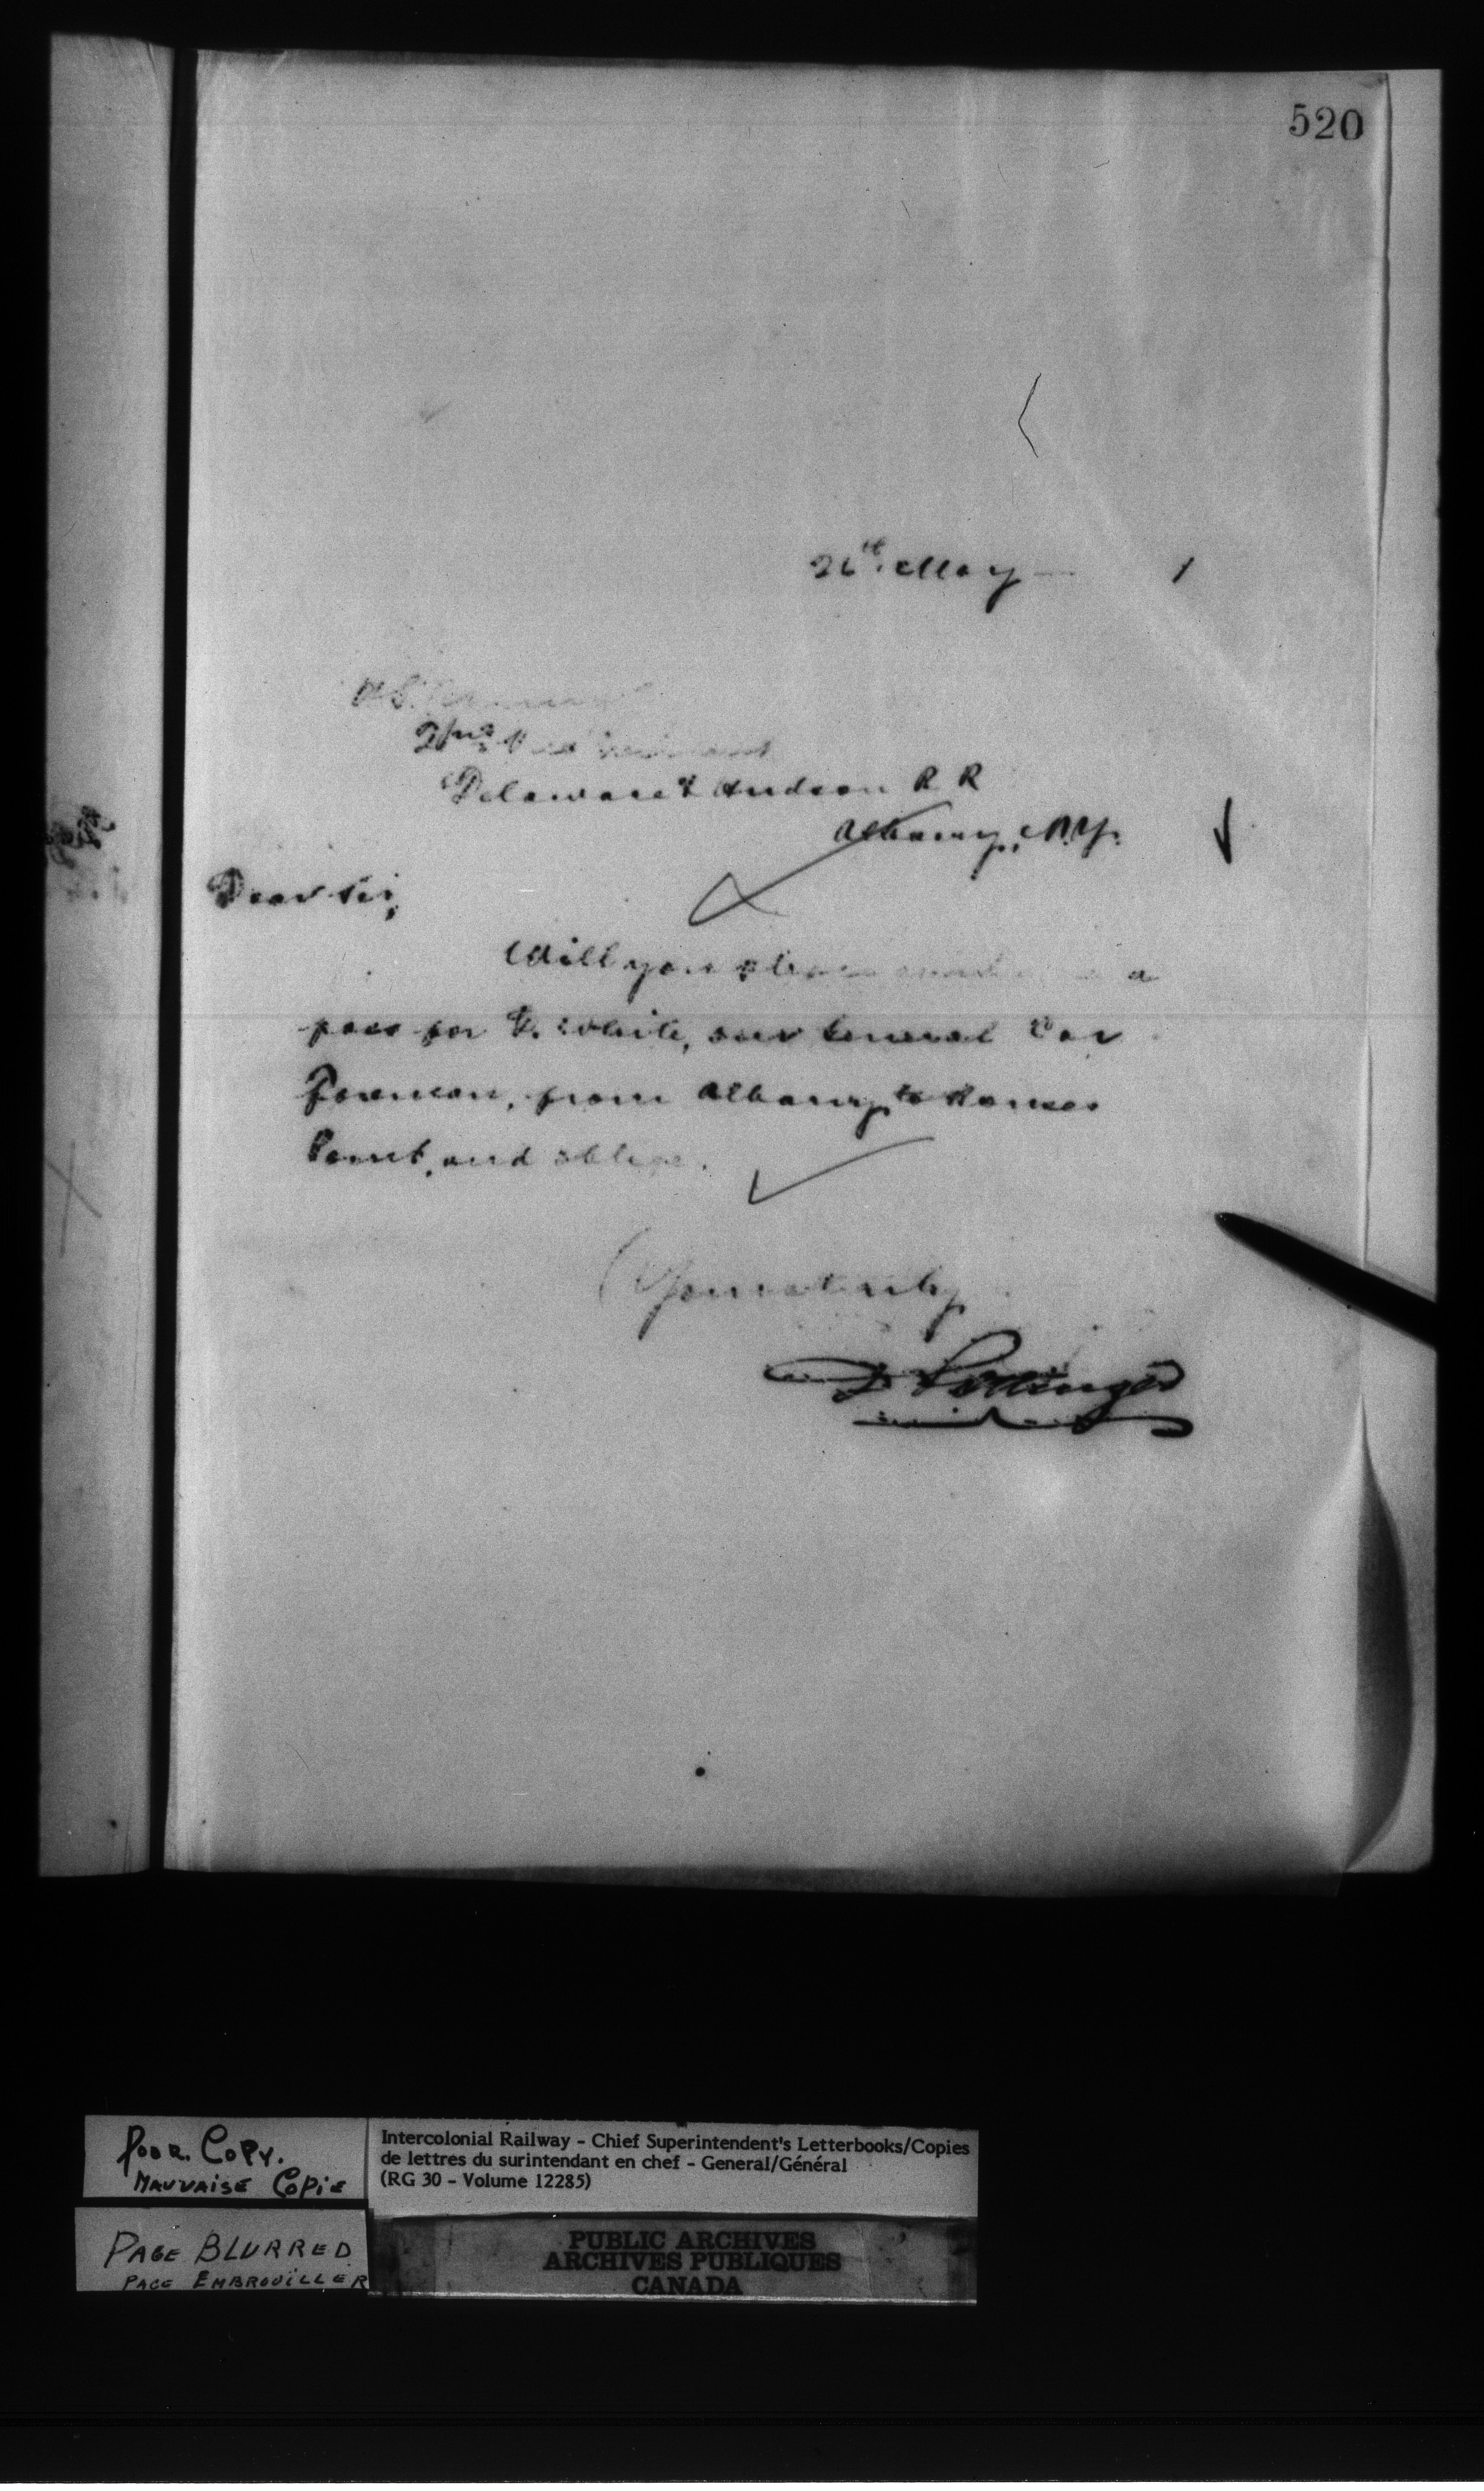 520
26th. May 1
Delaware & Hudson R R
Albany, N.Y.
Dear Sir,
Will you please send a
pass for D. White, our General Car
Foreman, from Albany to Rouses
Point, and oblige.
Yours truly
D Pottinger
POOR COPY.
MAUVAISE COPIE
Intercolonial Railway - Chief Superintendent's Letterbooks/Copies
de lettres du surintendant en chef - General/Général
(RG 30 - Volume 12285)
PAGE BLURRED
PAGE EMBROUILLER
PUBLIC ARCHIVES
ARCHIVES PUBLIQUES
CANADA